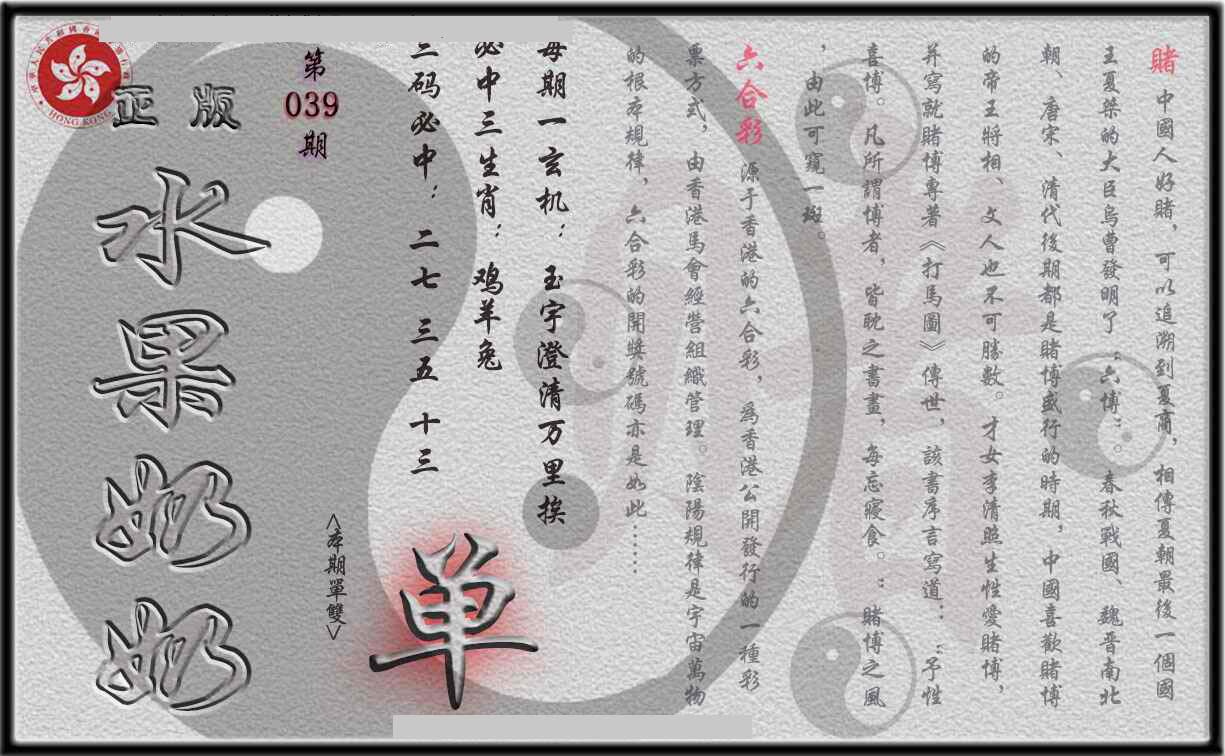 賭 中國人好賭，可以追溯到夏商，相傳夏朝最後一個國
王夏桀的大臣烏曹發明了“六博”。春秋戰國、魏晋南北
朝、唐宋、清代後期都是賭博盛行的時期，中國喜歡賭博
的帝王將相、文人也不可勝數。才女李清照生性愛賭博，
并寫就賭博專著《打馬圖》傳世，該書序言寫道：“予性
喜博。凡所謂博者，皆耽之書畫，每忘寢食。”賭博之風
，由此可窺一斑。
六合彩 源于香港的六合彩，為香港公開發行的一種彩
票方式，由香港馬會經營組織管理。陰陽規律是宇宙萬物
的根本規律，六合彩的開獎號碼亦是如此……
每期一玄机：玉宇澄清万里挨
必中三生肖：鸡羊兔
三码必中：二七 三五 十三
单
<本期單雙>
第
039
期
正版
水果奶奶
HONG KONG